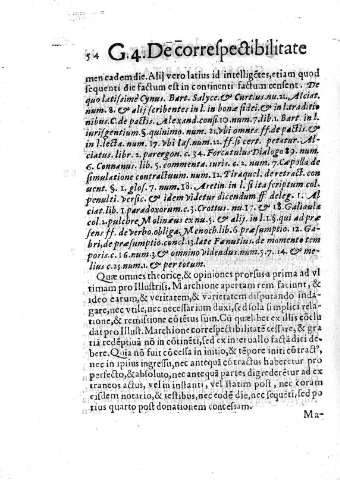 54 G.4. De correspectibilitate
men eadem die. Alij vero latius id intelligẽtes, etiam quod
sequenti die factum est in continenti factum censent. De
quo latissimè Cynus. Bart. Salyce. & Curtius. nu. 21. Alciat.
num. 8. & alij scribentes in l. in bonæ fidei. & in l. traditio
nibus C. de pactis. Alexand. consi. 10. num. 7. lib. 1. Bart. in l.
iurisgentium §. quinimo. num. 21. vbi omnes. ff. de pactis. &
in l. lecta. num. 17. vbi Ias. num. 22. ff. si cert. petatur. Al-
ciatus. lib. 2. parergon. c. 34. Forcatulus Dialogo 87. num.
6. Connanus. lib. 5. commenta. iuris. c. 2. num. 7. Capolla de
simulatione contractuum. num. 12. Tiraquel. de retract. con
uent. §. 1. glos. 7. num. 18. Aretin. in l. si ita scriptum col.
penulti. versic. & idem videtur dicendum ff. deleg. 1. Al
ciat. lib. 1. paradoxorum. c. 3. Crottus. nu. 17. & 18. Galiaula
col. 2. pulcre Molinæus ex nu. 5. & alij. in l. 1. §. qui ad præ
sens ff. de verbo. obliga. Menoch. lib. 6. præsumptio. 12. Ga-
bri, de præsumptio. concl. 13. late Fanutius. de momento tem
poris. c. 16. num. 3. & omnino videndus num. 5. 7. 14. & me-
lius c. 23. num. 1. & per totum.
Quæ omnes theoricę, & opiniones prorsus a prima ad vl
timam pro Illustriss. Marchione apertam rem faciunt, &
ideo earum, & veritatem, & varietatem disputando inda-
gare, nec vtile, nec necessarium duxi, sed sola simplici rela-
tione, & remissione cōtẽtus sum. Cum quælibet ex illis cōclu
dat pro Illust. Marchione correspectibilitatẽ cessare, & gra
tia redẽptiua nō in cōtinẽti, sed ex interuallo facta dici de-
bere. Quia nō fuit cōcessa in initio, & tẽpore initi cōtract⁹,
nec in ipsius ingressu, nec antequā cōtractus haberetur pro
perfecto, & absoluto, nec antequā partes digrederẽtur ad ex
traneos actus, vel in instanti, vel statim post, nec coram
eisdem notario, & testibus, nec eodẽ die, nec sequẽti, sed po
tius quarto post donationem contestam.
Ma-